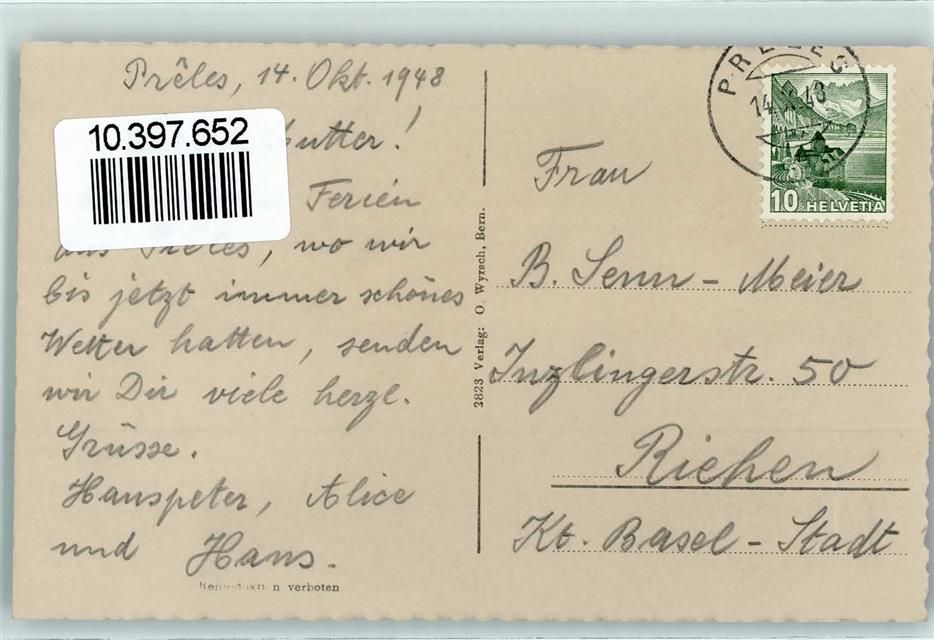 Prêles, 14. Okt. 1948
10.397.652
utter!
Ferien
aus Prêles, wo wir
bis jetzt immer schönes
Wetter hatten, senden
wir Dir viele herzl.
Grüsse.
Hanspeter, Alice
und Hans.
Reproduktion verboten
2823 Verlag: O. Wyrsch, Bern.
PRÊLES
14.X.48
10 HELVETIA
Frau
B. Senn - Meier
Inzlingerstr. 50
Riehen
Kt. Basel - Stadt